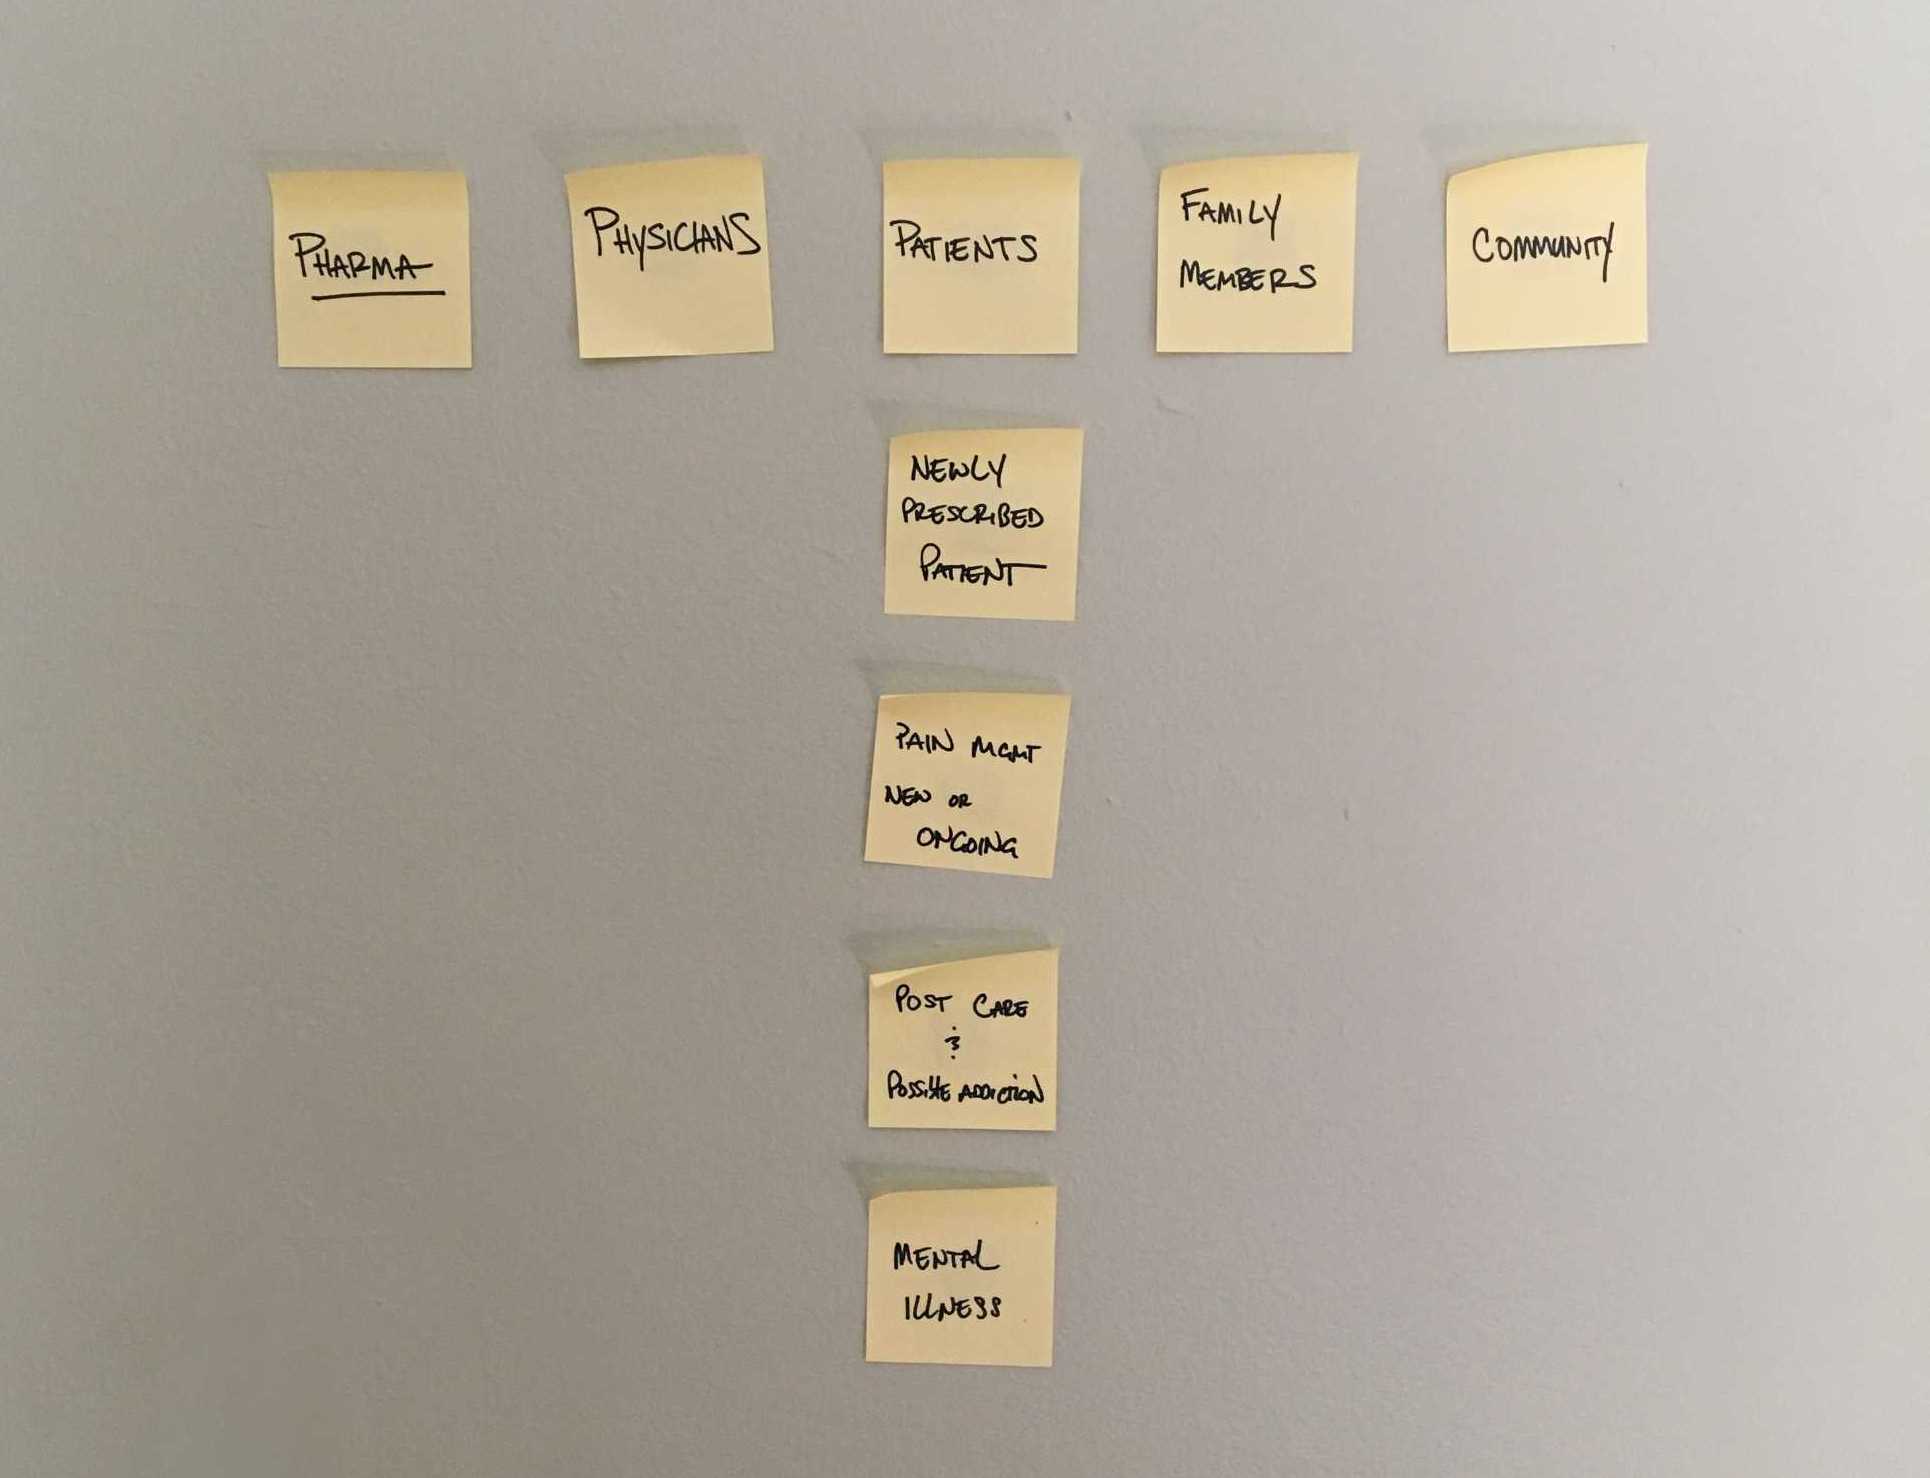 PHARMA
PHYSICIANS
PATIENTS
FAMILY
MEMBERS
COMMUNITY
NEWLY
PRESCRIBED
PATIENT
PAIN MGMT
NEW OR
ONGOING
POST CARE
&
POSSIBLE ADDICTION
MENTAL
ILLNESS